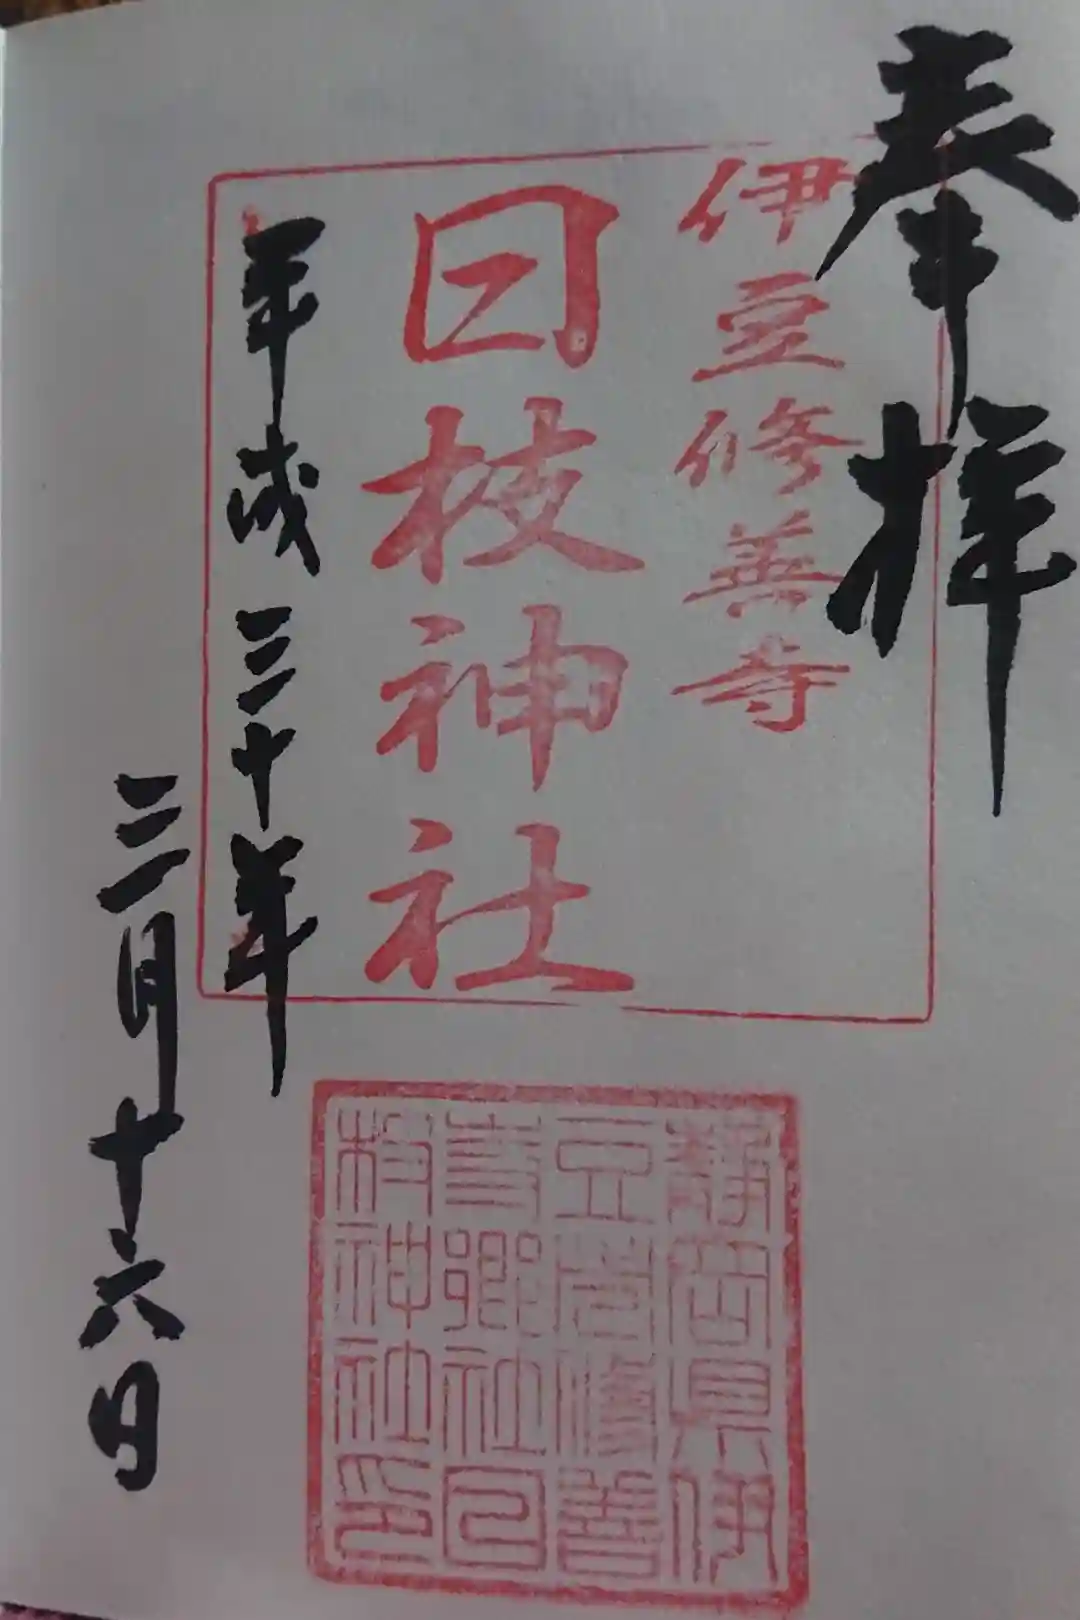 奉拝
伊豆修善寺
日枝神社
平成三十年
三月十六日
静岡県伊
豆市修善
寺郷社日
枝神社印